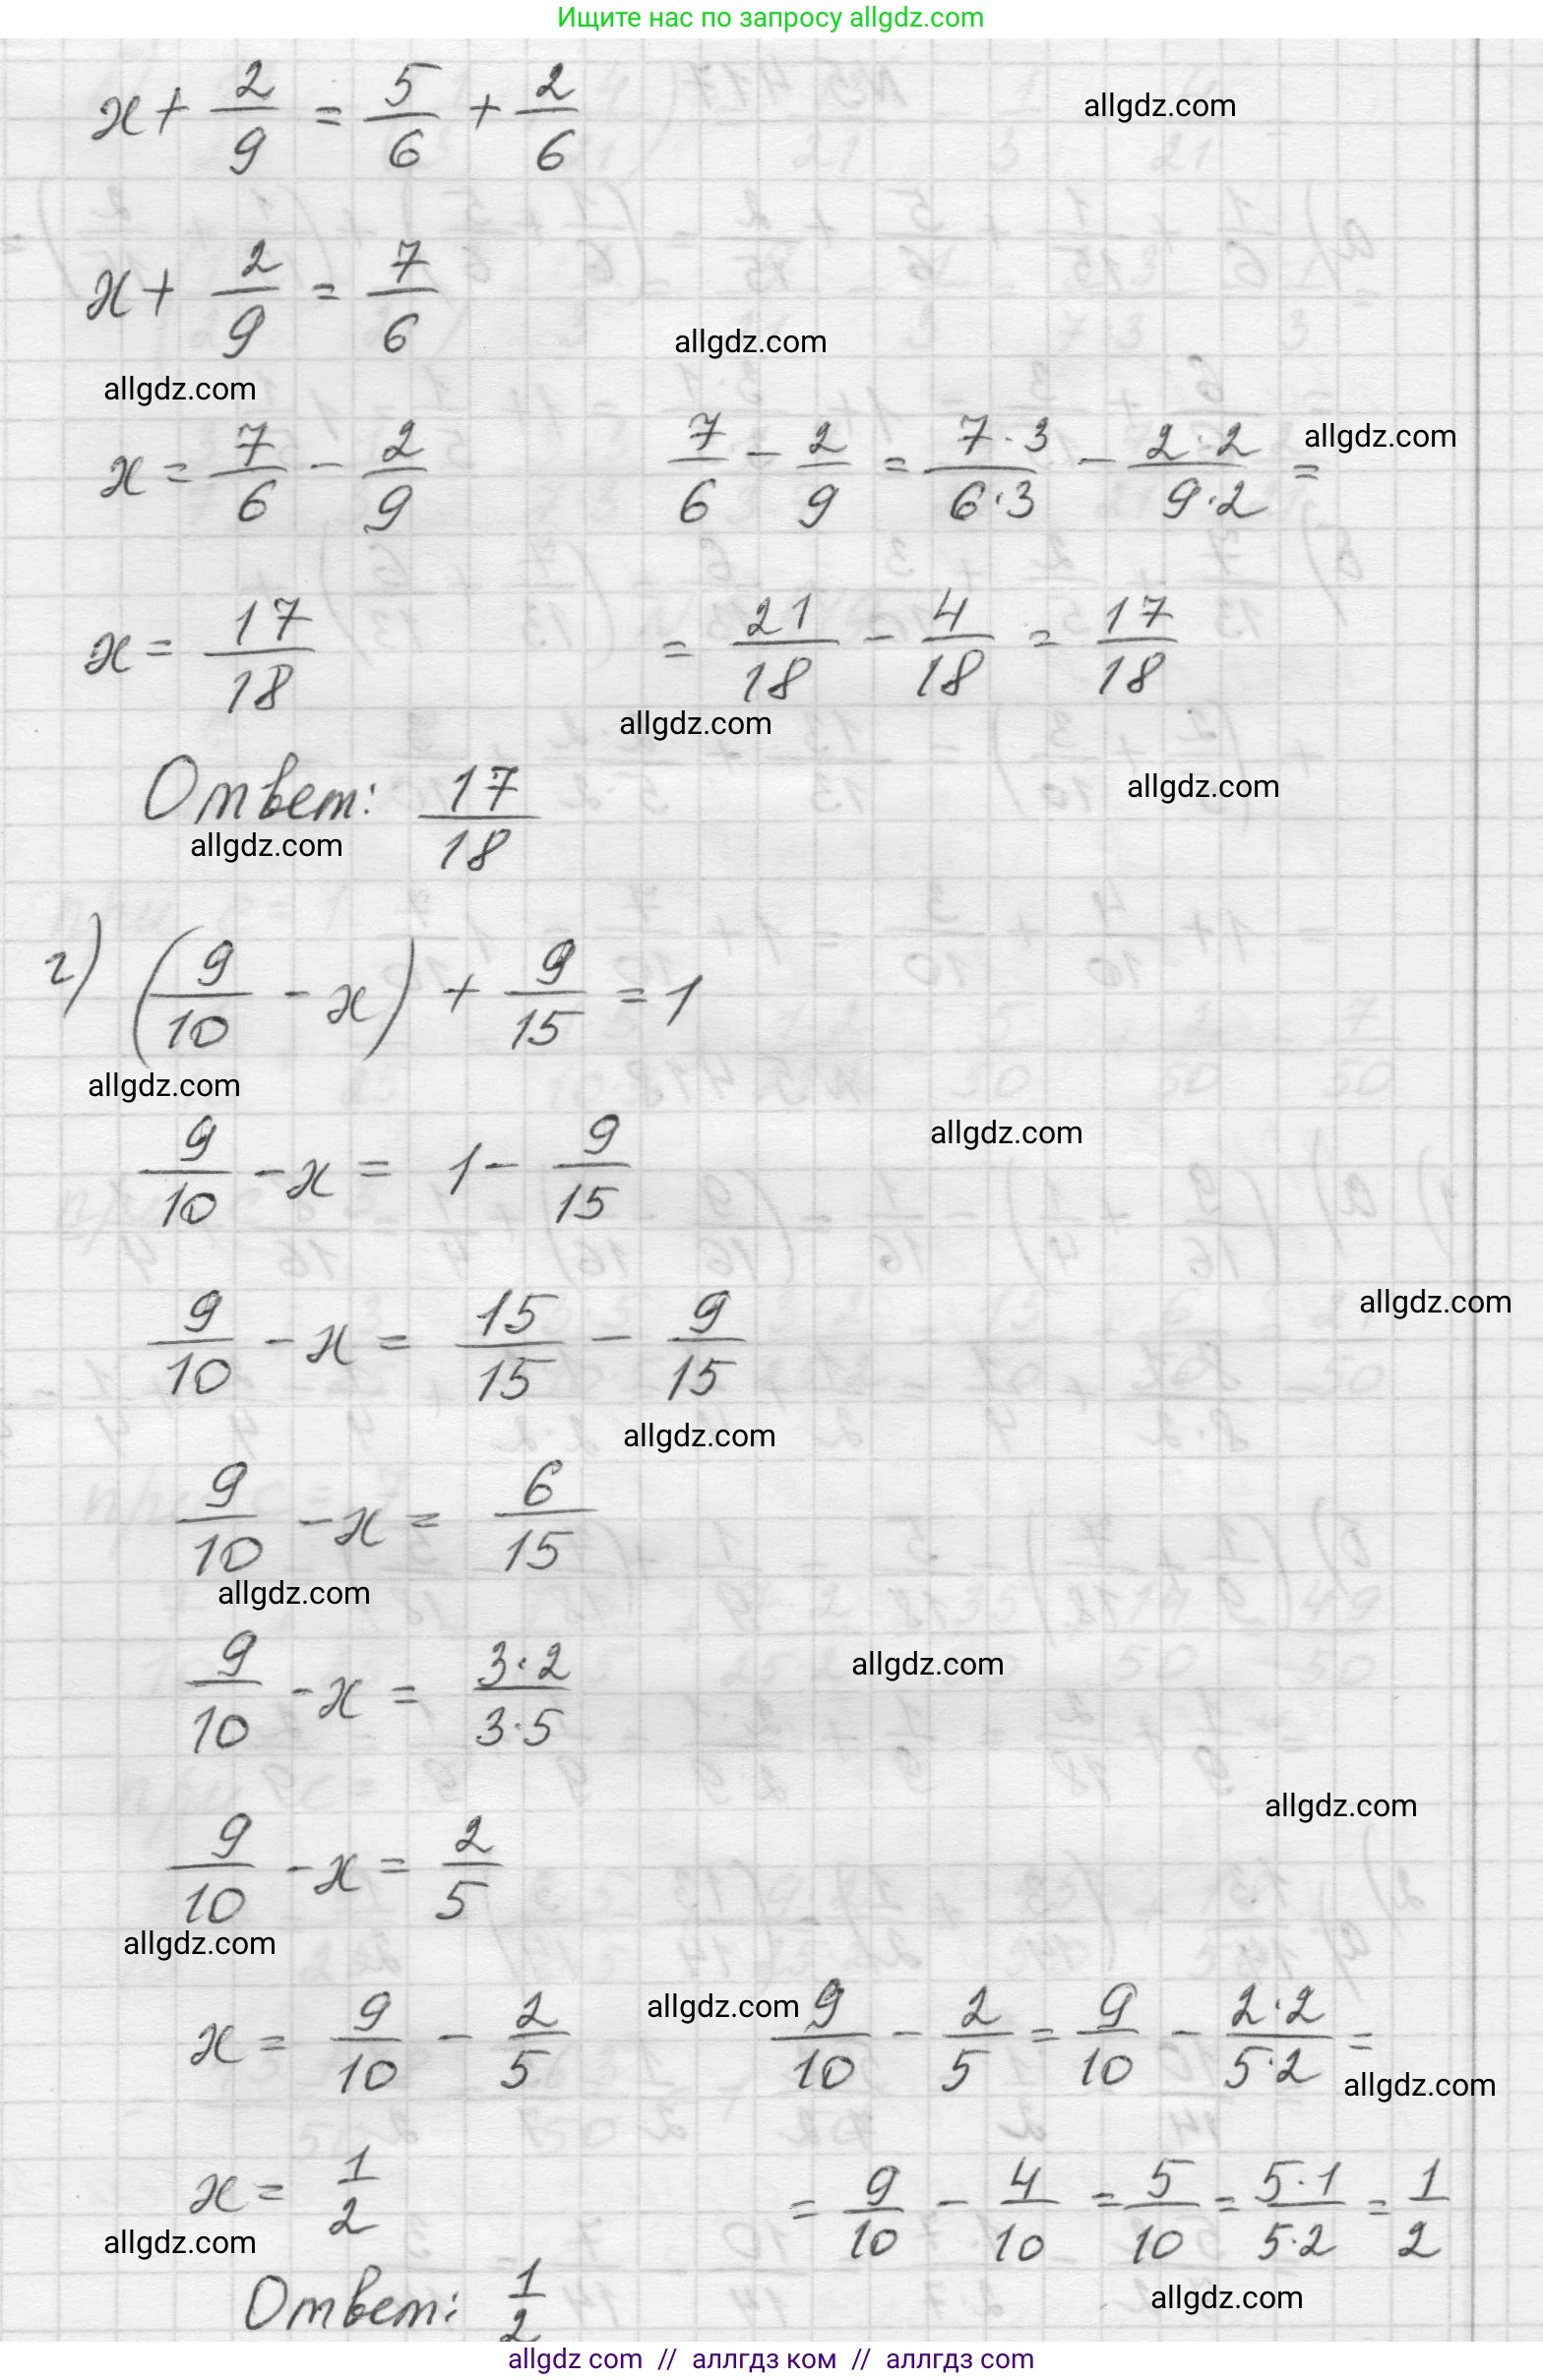 Ищите нас по запросу allgdz.com
x + 2/9 = 5/6 + 2/6
allgdz.com
x + 2/9 = 7/6
allgdz.com
allgdz.com
x = 7/6 - 2/9
7/6 - 2/9 = 7·3/6·3 - 2·2/9·2 =
allgdz.com
x = 17/18
= 21/18 - 4/18 = 17/18
allgdz.com
allgdz.com
Ответ: 17/18
allgdz.com
г) (9/10 - x) + 9/15 = 1
allgdz.com
allgdz.com
9/10 - x = 1 - 9/15
allgdz.com
9/10 - x = 15/15 - 9/15
allgdz.com
9/10 - x = 6/15
allgdz.com
9/10 - x = 3·2/3·5
allgdz.com
allgdz.com
9/10 - x = 2/5
allgdz.com
x = 9/10 - 2/5
allgdz.com
9/10 - 2/5 = 9/10 - 2·2/5·2 =
allgdz.com
x = 1/2
= 9/10 - 4/10 = 5/10 = 5·1/5·2 = 1/2
allgdz.com
allgdz.com
Ответ: 1/2
allgdz com // аллгдз ком // аллгдз com